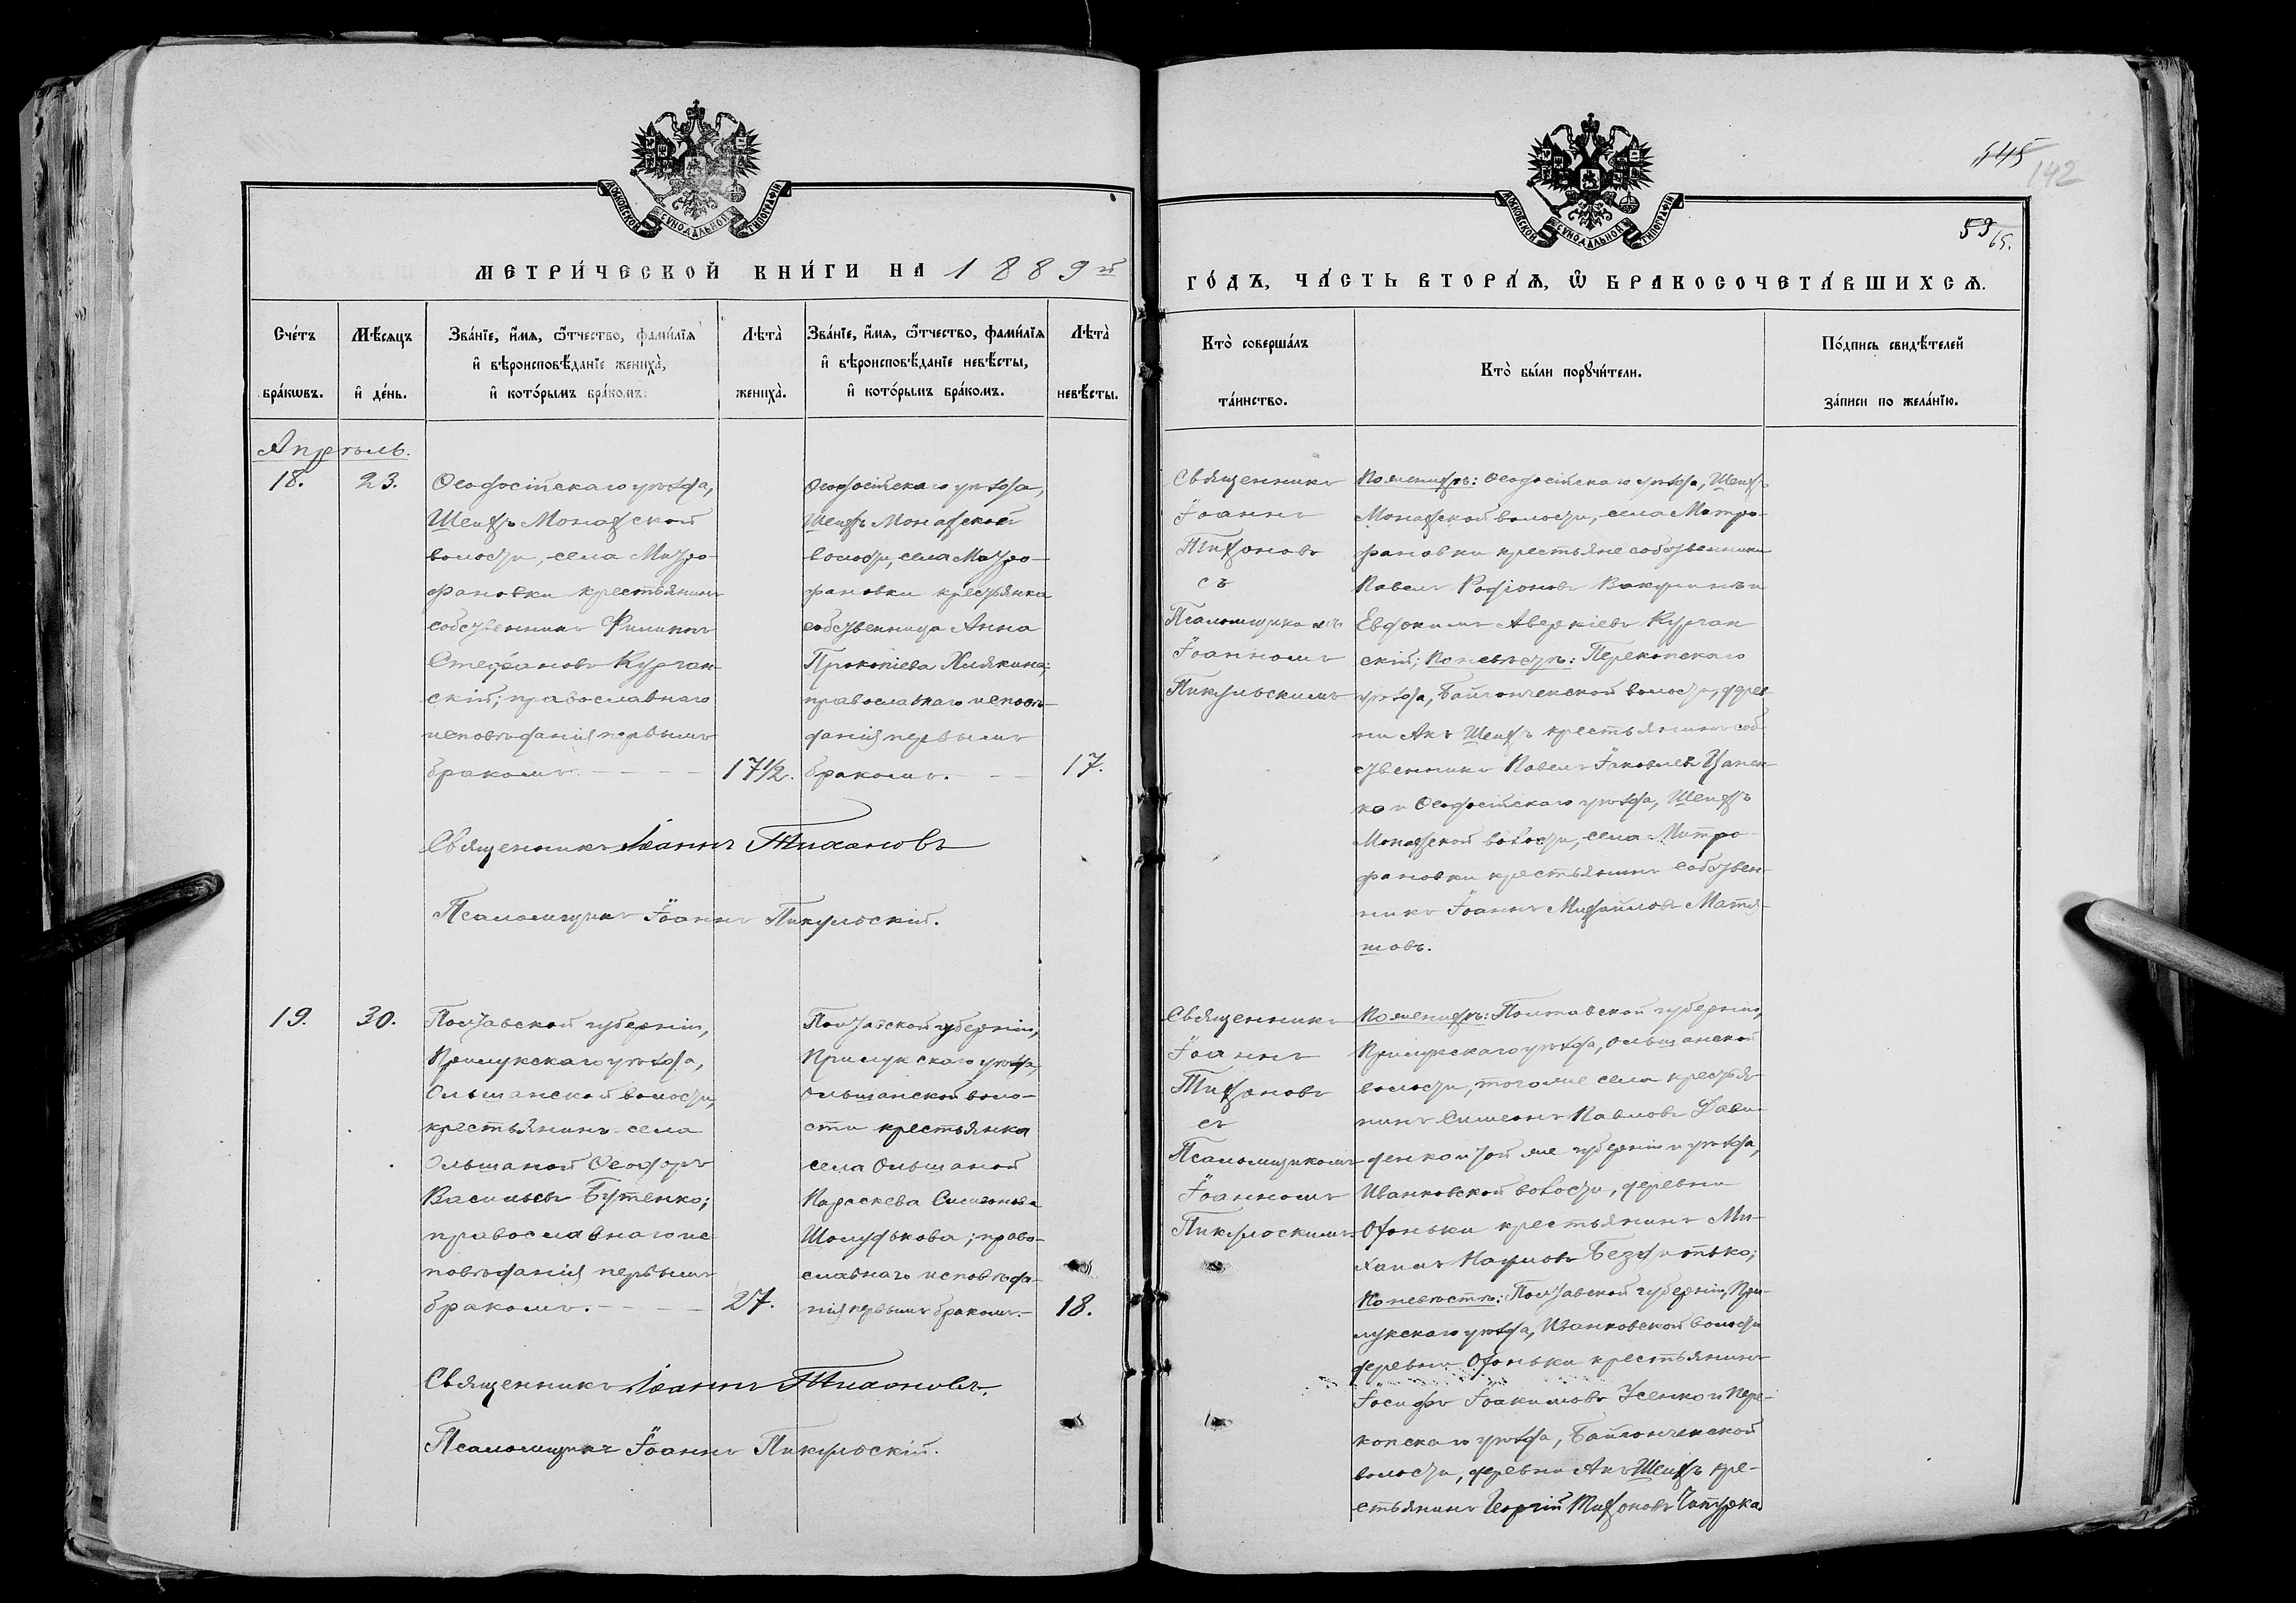 145
142
59/65.
МОСКОВСКОЙ СѴНОДАЛЬНОЙ ТИПОГРАФІИ
МЕТРИ́ЧЕСКОЙ КНИ́ГИ НА 1889й
Сче́тъ бра́кѡвъ.
Мѣ́сяцъ и҆ де́нь.
Зва́нїе, и҆́мя, ѻ҆́тчество, фами́лїя
и҆ вѣроисповѣ́данїе жениха̀,
и҆ кото́рымъ бра́комъ.
Лѣта̀ жениха̀.
Зва́нїе, и҆́мя, ѻ҆́тчество, фами́лїя
и҆ вѣроисповѣ́данїе невѣ́сты,
и҆ кото́рымъ бра́комъ.
Лѣта̀ невѣ́сты.
Апрѣль.
18.
23.
Ѳеодосійскаго уѣзда,
Шейхъ Монахской
волости, села Митро-
фановки крестьянинъ
собственникъ Филиппъ
Стефановъ Курган-
скій; православнаго
исповѣданія первымъ
бракомъ. - - - -
17½.
Ѳеодосійскаго уѣзда,
Шейхъ Монахской
волости, села Митро-
фановки крестьянка
собственница Анна
Прокопіева Хлякина;
православнаго исповѣ-
данія первымъ
бракомъ. - - -
17.
Священникъ Іоаннъ Тихоновъ
Псаломщикъ Іоаннъ Пикульскій.
19.
30.
Полтавской губерніи,
Прилукскаго уѣзда,
Ольшанской волости,
крестьянинъ села
Ольшаной Ѳеодоръ
Васильевъ Бутенко;
православнаго ис
повѣданія первымъ
бракомъ. - - - -
27.
Полтавской губерніи,
Прилукскаго уѣзда,
Ольшанской воло-
сти крестьянка
села Ольшаной
Параскева Симеонова
Шолудькова; право-
славнаго исповѣда-
нія первымъ бракомъ. -
18.
Священникъ Іоаннъ Тихоновъ.
Псаломщикъ Іоаннъ Пикульскій.
МОСКОВСКОЙ СѴНОДАЛЬНОЙ ТИПОГРАФІИ
ГО́ДЪ, ЧА́СТЬ ВТОРА́Я, Ѡ҆ БРАКОСОЧЕТА́ВШИХСЯ.
Кто̀ соверша́лъ
та́инство.
Кто̀ бы́ли порꙋчи́тели.
По́дпись свидѣ́телей
за́писи по жела́нїю.
Священникъ
Іоаннъ
Тихоновъ
съ
Псаломщикомъ
Іоанномъ
Пикульскимъ
По женихѣ: Ѳеодосійскаго уѣзда, Шейхъ
Монахской волости, села Митро-
фановки крестьяне собственники
Павелъ Родіоновъ и
Евдокимъ Аверкіевъ Курган
скій; По невѣстѣ: Перекопскаго
уѣзда, Байгончекской волости, дерев-
ни Акъ Шейхъ крестьянинъ соб-
ственникъ Павелъ Іаковлевъ Цапен-
ко и Ѳеодосійскаго уѣзда, Шейхъ
Монахской волости, села Митро-
фановки крестьянинъ собствен-
никъ Іоаннъ Михайловъ Матя-
шовъ.
Священникъ
Іоаннъ
Тихоновъ
съ
Псаломщикомъ
Іоанномъ
Пикульскимъ
По женихѣ: Полтавской губерніи,
Прилукскаго уѣзда, Ольшанской
волости, тогоже села крестья-
нинъ Симеонъ Павловъ Дави-
денко и той же губерніи и уѣзда,
Иванковской волости, деревни
Охоньки крестьянинъ Ми-
хаилъ Наумовъ Безхитько;
По невѣстѣ: Полтавской губерніи, При-
лукскаго уѣзда, Иванковской волости
деревни Охоньки крестьянинъ
Іосифъ Іоакимовъ Усенко и Пере-
копскаго уѣзда, Байгончекской
волости, деревни Акъ Шейхъ кре-
стьянинъ Георгій Тихоновъ Чапурка